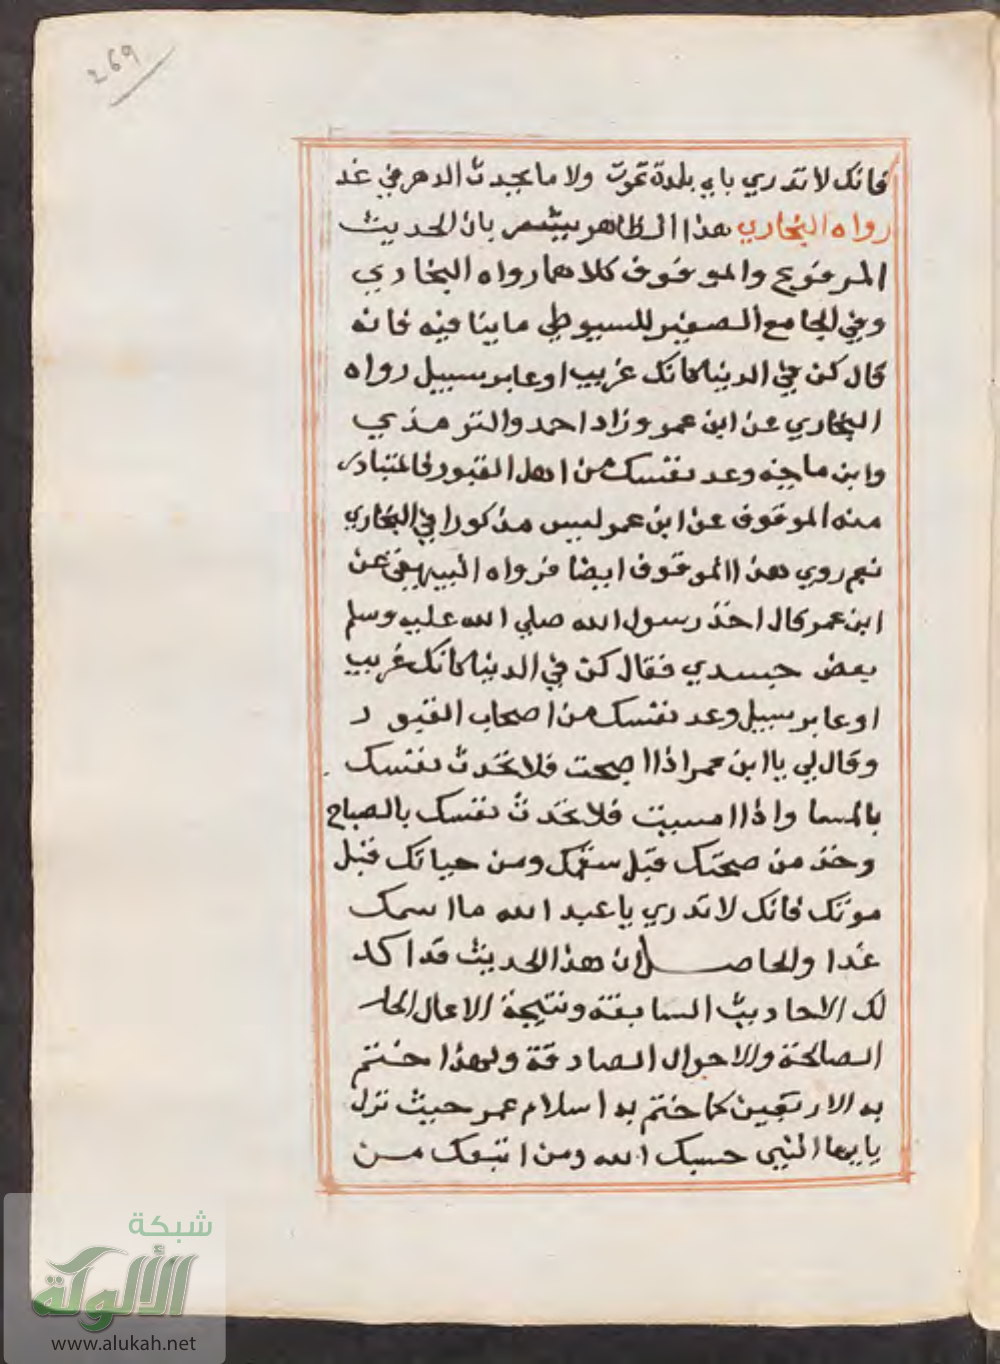 269
فانك لا تدري باي بلدة تموت ولا ما يحدث الدهر في غد
رواه البخاري هذا الظاهر يشعر بان الحديث
المرفوع والموقوف كلاهما رواه البخاري
وفي الجامع الصغير للسيوطي ما ينافيه فانه
قال كن في الدنيا كانك غريب او عابر سبيل رواه
البخاري عن ابن عمر وزاد احمد والترمذي
وابن ماجه وعد نفسك من اهل القبور فالمتبادر
منه الموقوف عن ابن عمر ليس مذكورا في البخاري
نعم روي هذا الموقوف ايضا فرواه البيهقي عن
ابن عمر قال اخذ رسول الله صلي الله عليه وسلم
بعض جسدي فقال كن في الدنيا كانك غريب
او عابر سبيل وعد نفسك من اصحاب القبور
وقال لي يا ابن عمر اذا اصبحت فلا تحدث نفسك
بالمسا واذا امسيت فلا تحدث نفسك بالصباح
وخذ من صحتك قبل سقمك ومن حياتك قبل
موتك فانك لا تدري يا عبد الله ما اسمك
غدا والحاصل ان هذا الحديث قد اكد
لك الاحاديث السابقة ونتيجة الاعمال
الصالحة والاحوال الصادقة ولهذا ختم
به الاربعين كما ختم به اسلام عمر حيث نزل
يايها النبي حسبك الله ومن اتبعك من
شبكة
الألوكة
www.alukah.net